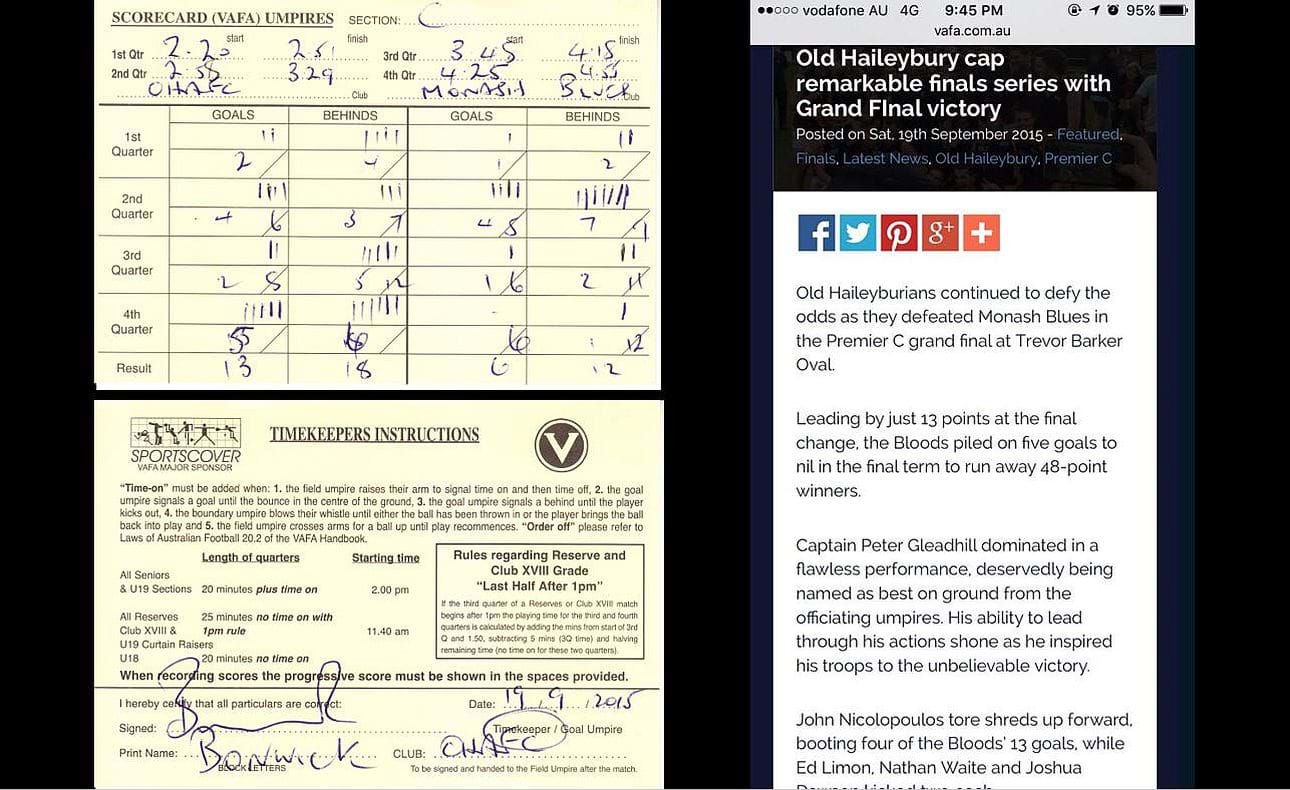 SCORECARD (VAFA) UMPIRES SECTION: C
start finish start finish
1st Qtr 2.20 2.51 3rd Qtr 3.45 4.15
2nd Qtr 2.58 3.29 4th Qtr 4.25 4.55
OHAFC Club MONASH BLUES Club
GOALS BEHINDS GOALS BEHINDS
1st
Quarter
2 4 1 2
2nd
Quarter
4 6 3 7 4 5 7 9
3rd
Quarter
2 8 5 12 1 6 2 11
4th
Quarter
5 6 6 12
Result 13 18 6 12
SPORTSCOVER
VAFA MAJOR SPONSOR
TIMEKEEPERS INSTRUCTIONS
V
“Time-on” must be added when: 1. the field umpire raises their arm to signal time on and then time off, 2. the goal
umpire signals a goal until the bounce in the centre of the ground, 3. the goal umpire signals a behind until the player
kicks out, 4. the boundary umpire blows their whistle until either the ball has been thrown in or the player brings the ball
back into play and 5. the field umpire crosses arms for a ball up until play recommences. “Order off” please refer to
Laws of Australian Football 20.2 of the VAFA Handbook.
Length of quarters Starting time
All Seniors
& U19 Sections 20 minutes plus time on 2.00 pm
All Reserves 25 minutes no time on with
Club XVIII & 1pm rule 11.40 am
U19 Curtain Raisers
U18 20 minutes no time on
Rules regarding Reserve and
Club XVIII Grade
“Last Half After 1pm”
If the third quarter of a Reserves or Club XVIII match
begins after 1pm the playing time for the third and fourth
quarters is calculated by adding the mins from start of 3rd
Q and 1.50, subtracting 5 mins (3Q time) and halving
remaining time (no time on for these two quarters).
When recording scores the progressive score must be shown in the spaces provided.
I hereby certify that all particulars are correct: Date: 19.9.2015
Signed: Timekeeper / Goal Umpire
Print Name: BONWICK CLUB: OHAFC
BLOCK LETTERS To be signed and handed to the Field Umpire after the match.
vodafone AU 4G 9:45 PM 95%
vafa.com.au
Old Haileybury cap
remarkable finals series with
Grand FInal victory
Posted on Sat, 19th September 2015 - Featured,
Finals, Latest News, Old Haileybury, Premier C
f g+ +
Old Haileyburians continued to defy the
odds as they defeated Monash Blues in
the Premier C grand final at Trevor Barker
Oval.
Leading by just 13 points at the final
change, the Bloods piled on five goals to
nil in the final term to run away 48-point
winners.
Captain Peter Gleadhill dominated in a
flawless performance, deservedly being
named as best on ground from the
officiating umpires. His ability to lead
through his actions shone as he inspired
his troops to the unbelievable victory.
John Nicolopoulos tore shreds up forward,
booting four of the Bloods’ 13 goals, while
Ed Limon, Nathan Waite and Joshua